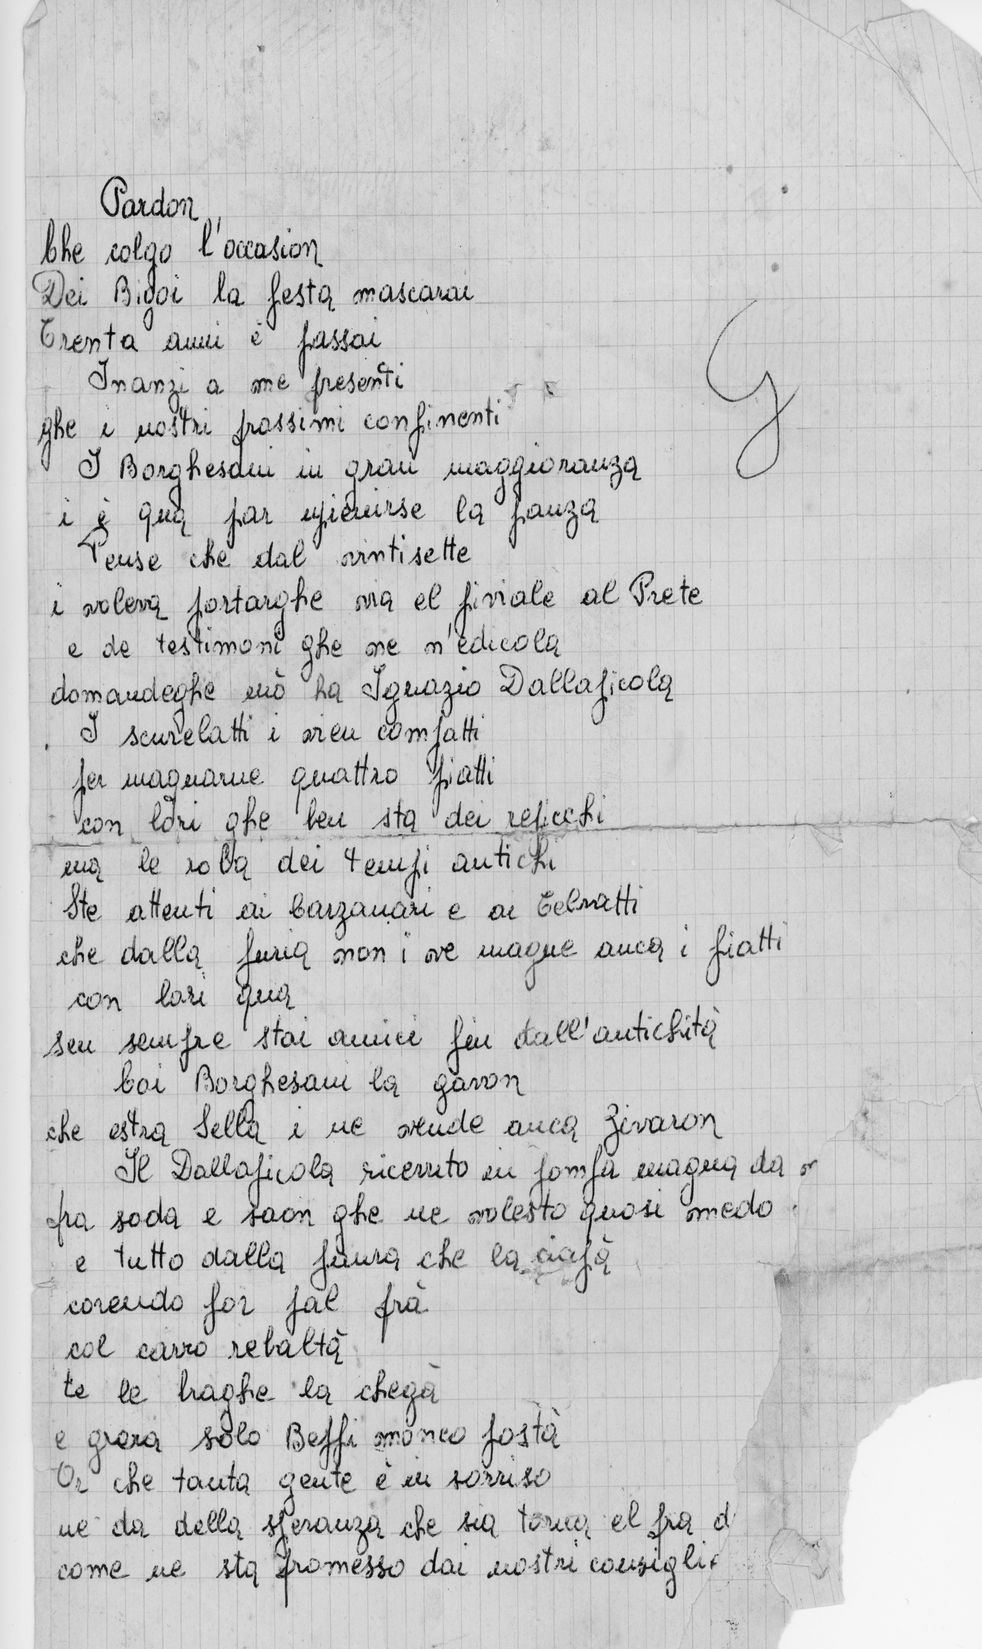 Pardon
Che colgo l'occasion
Dei Bigoi la festa mascarai
Trenta anni è passai
Inanzi a me presenti
ghe i nostri prossimi confinenti
I Borghesani in gran maggioranza
i è qua par upienirse la panza
Pense che dal vintisette
i voleva portarghe via el piviale al Prete
e de testimoni ghe ne n'edicola
domandeghe mò ha Ignazio Dallapicola
I scurelatti i vien compatti
per magnarne quattro piatti
con lori ghe ben sta dei repicchi
ma le roba dei tempi antichi
Ste attenti ai Carzanari e ai Celvatti
che dalla furia non i ve magne anca i piatti
con lori qua
sen sempre stai amici fin dall'antichità
Coi Borghesani la gavon
che estra Sella i ne vende anca Zivaron
Il Dallapicola ricevuto in pompa magna da
fra soda e saon ghe ne volesto quasi medo
e tutto dalla paura che la ciapà
corendo for pal prà
col carro rebaltà
te le braghe la chegà
e grera solo Beppi monco postà
Or che tanta gente è in sorriso
ne da della speranza che sia torna el pra d
come ne sta promesso dai nostri consiglie
G